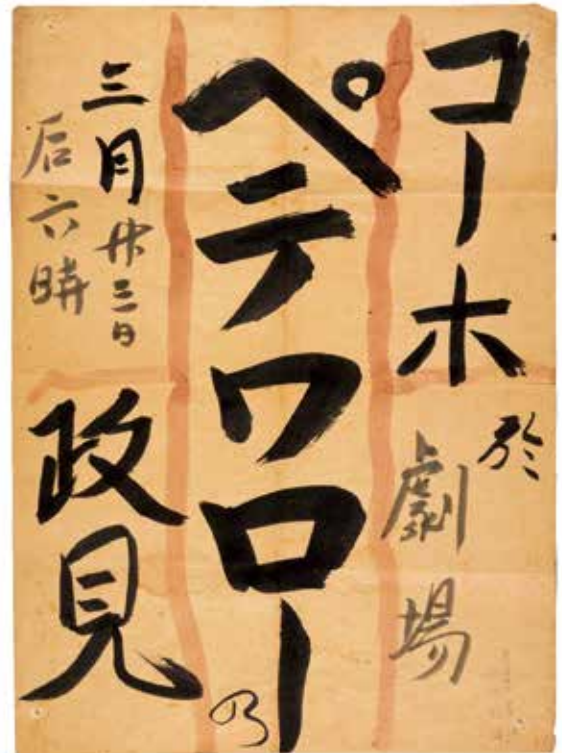 コーホ
於
劇場
ペテワロー乃
三月廿三日
后六時
政見